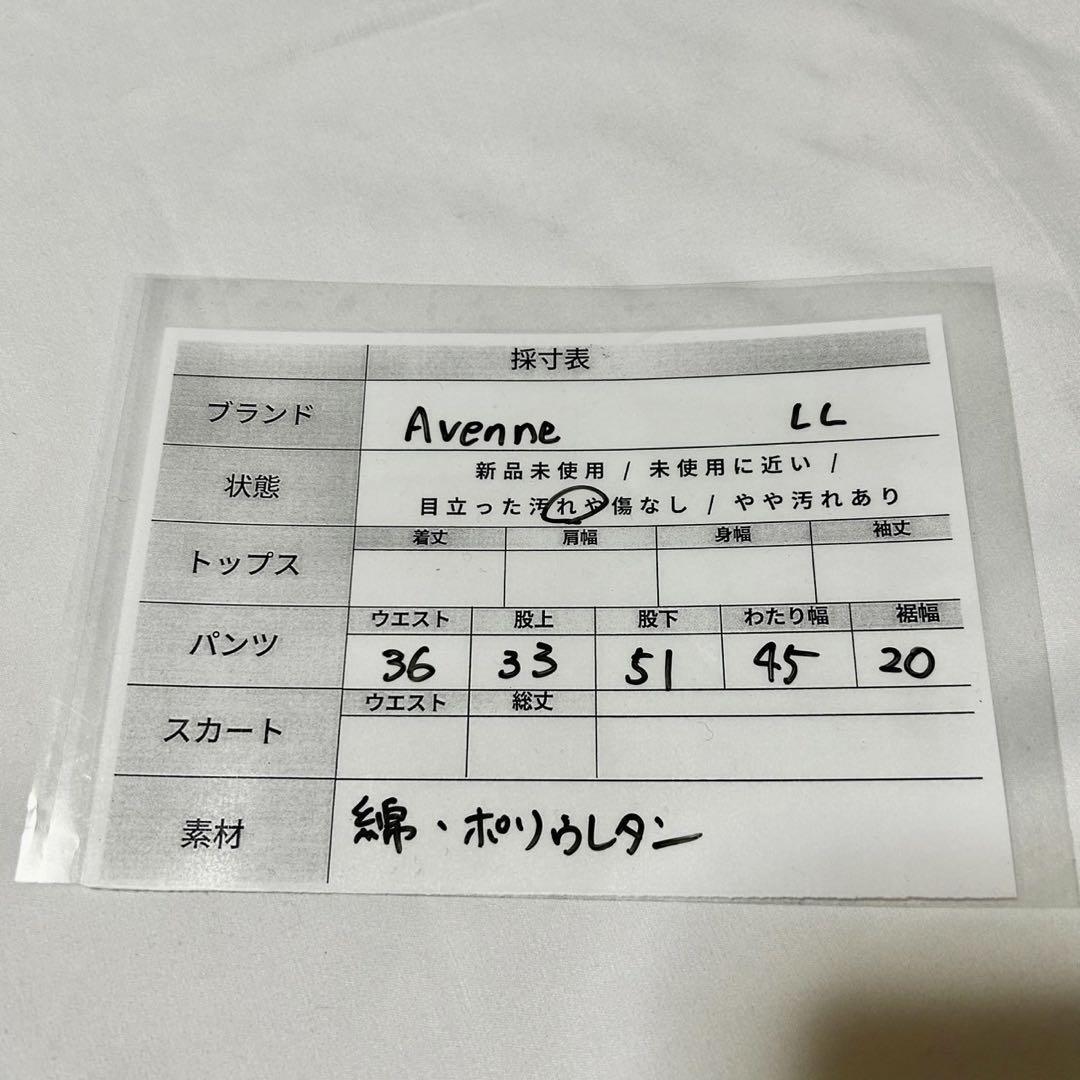 採寸表
ブランド Avenne LL
状態 新品未使用 / 未使用に近い /
目立った汚れや傷なし / やや汚れあり
トップス 着丈 肩幅 身幅 袖丈
パンツ ウエスト 股上 股下 わたり幅 裾幅
36 33 51 45 20
スカート ウエスト 総丈
素材 綿・ポリウレタン